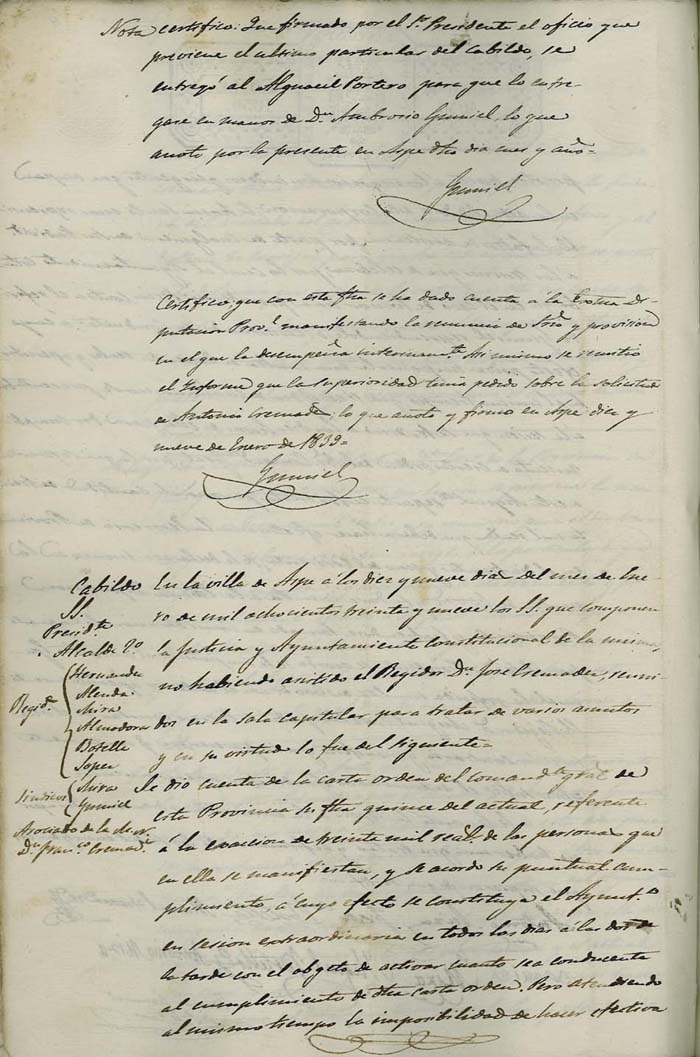 Nota
certifico: Que firmado por el Sr. Presidente el oficio que
previene el ultimo particular del Cabildo, se
entregó al Alguacil Portero para que lo entre-
gase en manos de Dn. Ambrosio Gumiel, lo que
anoto por la presente en Aspe dho dia mes y año=
Gumiel
Certifico: que con esta fha se ha dado cuenta á la Exma Di-
putacion Prov.l manifestando la renuncia de Srio y provision
en el que la desempeña interinam.te Asi mismo se remitio
el Informe que la superioridad tenia pedido sobre la solicitud
de Antonio Cremades, lo que anoto y firmo en Aspe diez y
nueve de Enero de 1839=
Gumiel
Cabildo
SS.
Presid.te
Alcalde 2º
Regid.s
Hernandez
Almodovar
Botella
Soper
Sindicos
Mira
Gumiel
Asociado de la
Dn. Fran.co Cremad.s
En la villa de Aspe á los diez y nueve dias del mes de Ene-
ro de mil ochocientos treinta y nueve los SS. que componen
la Justicia y Ayuntamiento Constitucional de la misma,
no habiendo asistido el Regidor Dn. Jose Cremades, reuni-
dos en la sala capitular para tratar de varios asuntos
y en su virtud lo fue del siguiente=
Se dio cuenta de la carta orden del comand.te gral de
esta Provincia su fha quince del actual, referente
á la exaccion de treinta mil real.s de las personas que
en ella se manifiestan, y se acordo su puntual cum-
plimiento, á cuyo efecto se constituya el Ayunt.o
en sesion extraordinaria en todos los dias á las dos de
la tarde con el obgeto de activar cuanto sea conducente
al cumplimiento de dha carta orden. Pero atendiendo
al mismo tiempo la imposibilidad de hacer efectiva